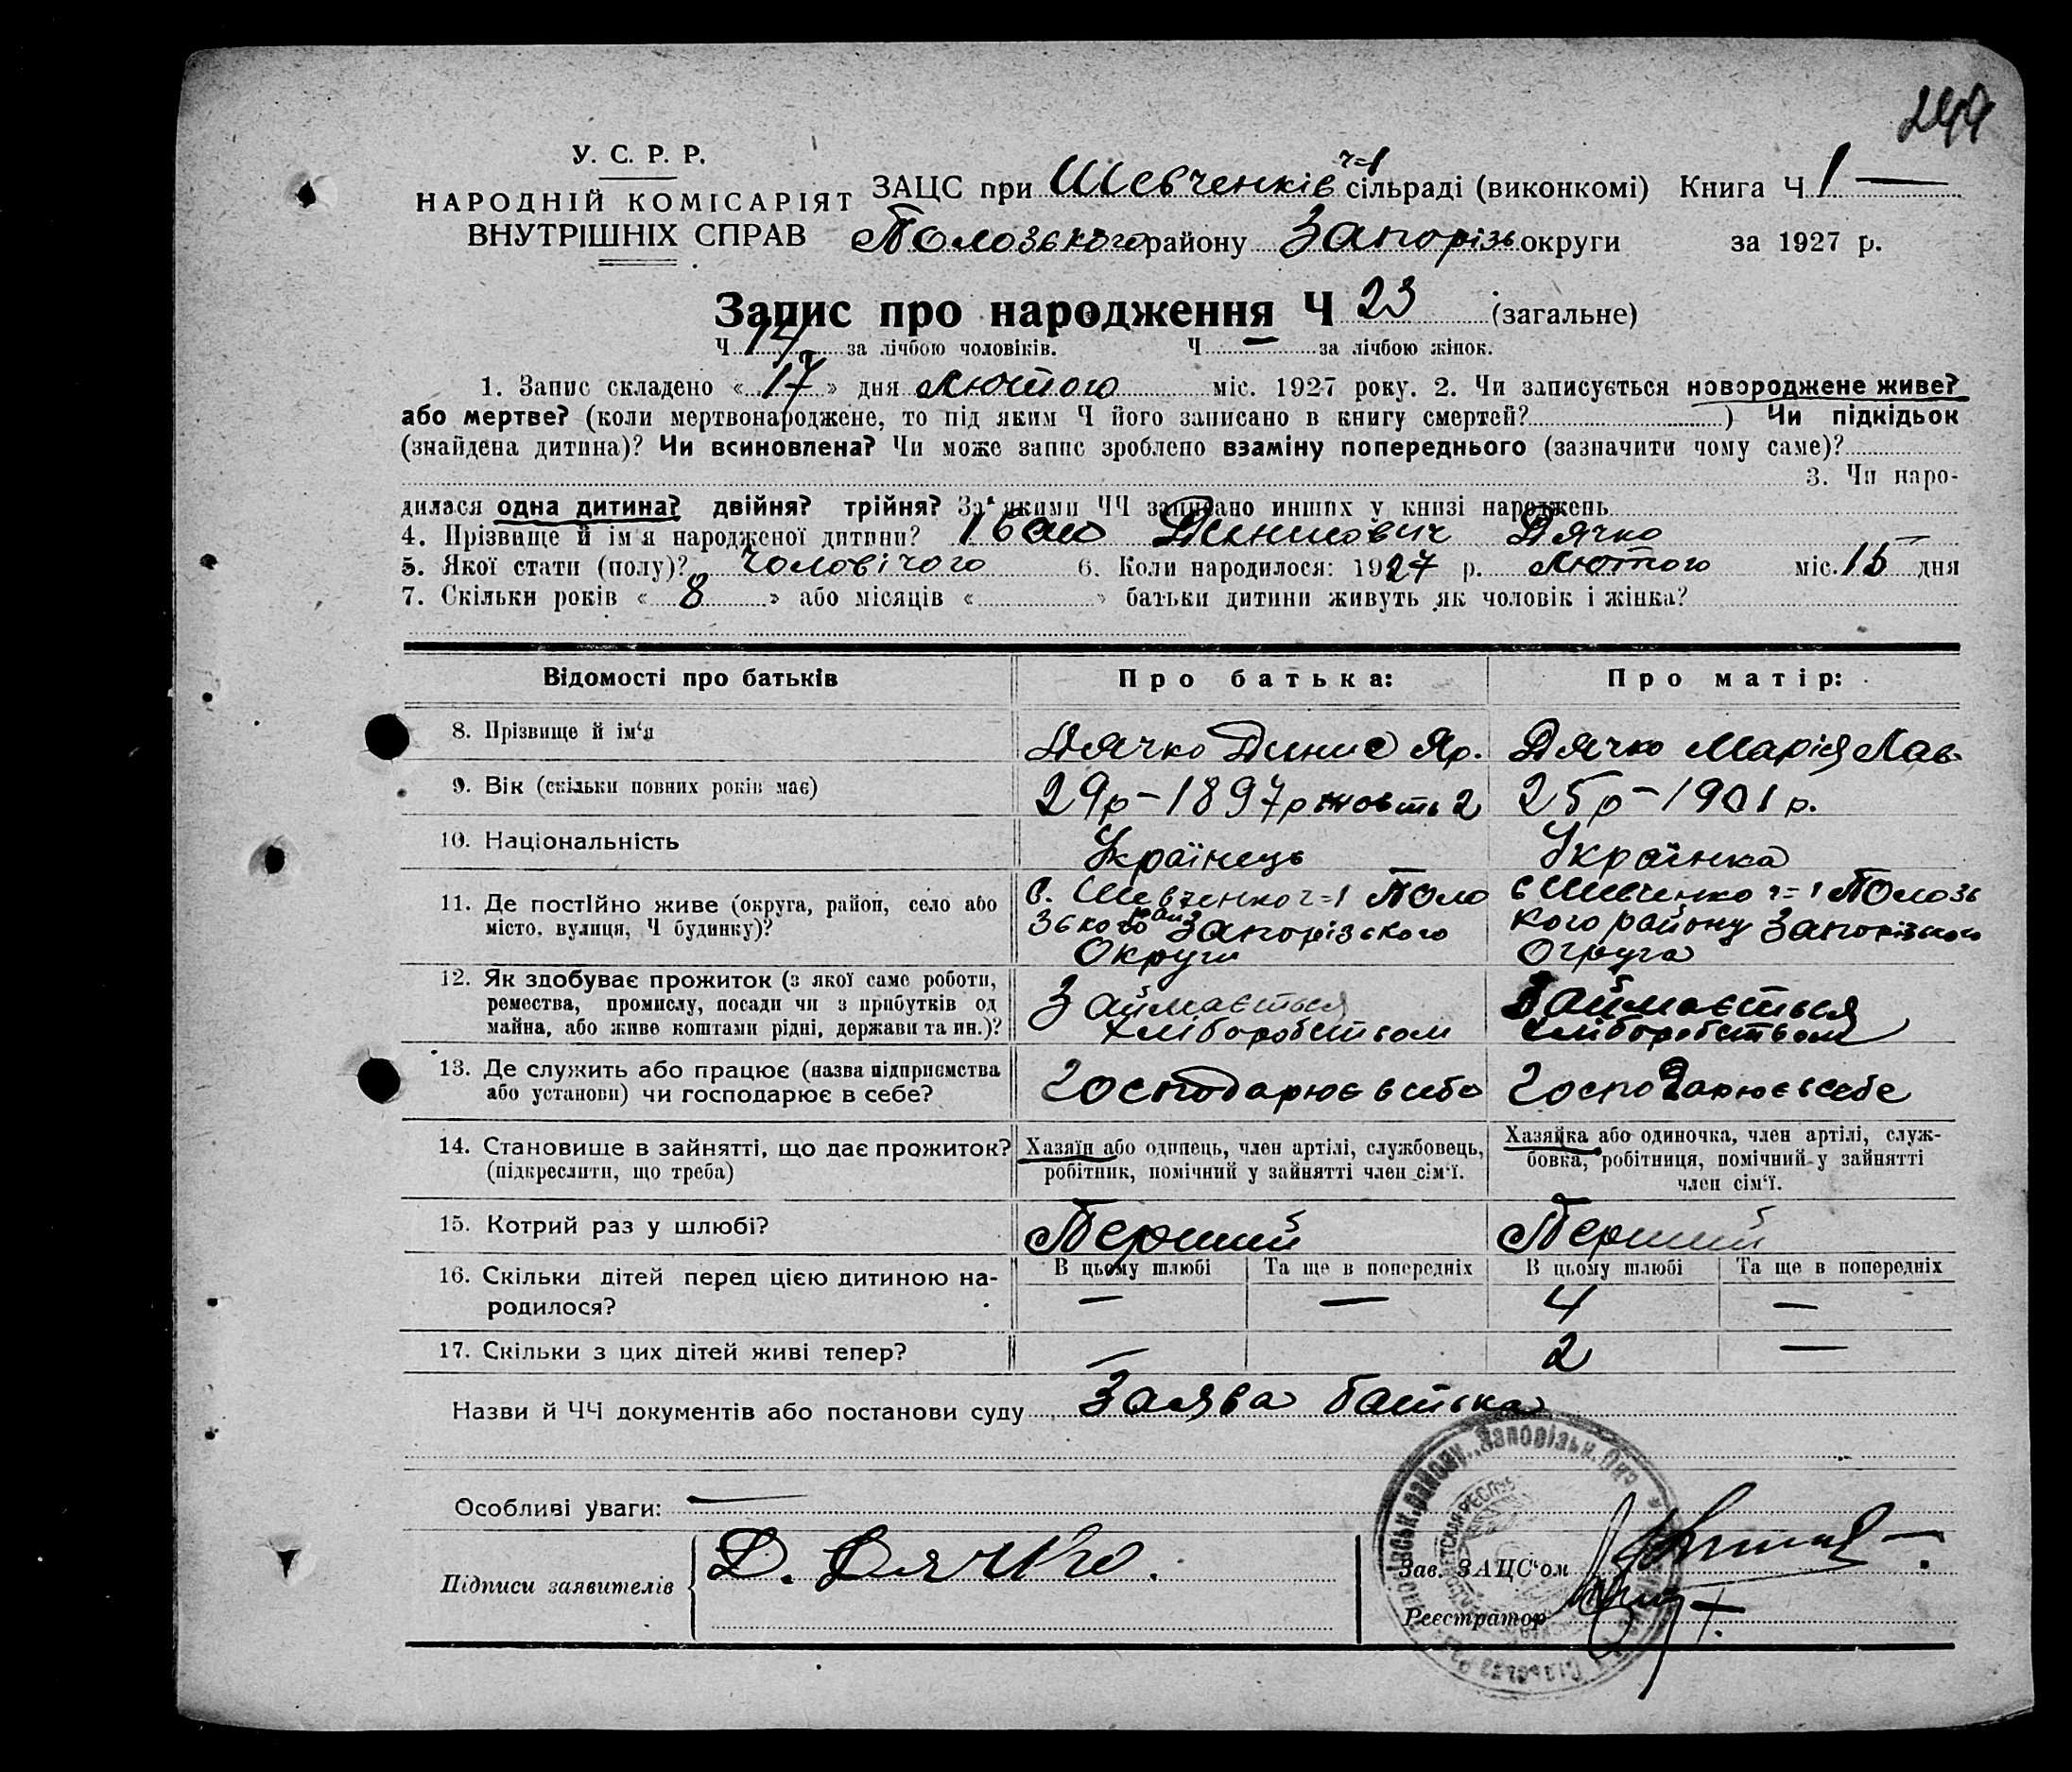 244
У. С. Р. Р.
НАРОДНІЙ КОМІСАРІЯТ
ВНУТРІШНІХ СПРАВ
ЗАЦС при Шевченків ч=1 сільраді (виконкомі) Книга Ч 1 —
Полозького району Запорізь округи за 1927 р.
Запис про народження Ч 23 (загальне)
Ч 14 за лічбою чоловіків. Ч — за лічбою жінок.
1. Запис складено « 17 » дня Лютого міс. 1927 року. 2. Чи записується новороджене живе?
або мертве? (коли мертвонароджене, то під яким Ч його записано в книгу смертей? ) Чи підкідьок
(знайдена дитина)? Чи всиновлена? Чи може запис зроблено взаміну попереднього (зазначити чому саме)?
3. Чи наро-
дилася одна дитина? двійня? трійня? За якими ЧЧ записано инших у книзі народжень
4. Прізвище й ім'я народженої дитини? Іван Динисович Дячко —
5. Якої стати (полу)? Чоловічого 6. Коли народилося: 1927 р. Лютого міс. 15 дня
7. Скільки років « 8 » або місяців « » батьки дитини живуть як чоловік і жінка?
Відомості про батьків Про батька: Про матір:
8. Прізвище й ім'я Дячко Динис Яр. Дячко Марія Лав
9. Вік (скільки повних років має) 29р – 1897р жовть 2 25р – 1901р.
10. Національність Українець Українка
11. Де постІйно живе (округа, район, село або
місто, вулиця, Ч будинку)?
с. Шевченко ч=1 Поло
зького рай Запорізького
Округи
с Шевченко ч=1 Полозь
кого району Запорізького
Огруга
12. Як здобуває прожиток (з якої саме роботи,
ремества, промислу, посади чи з прибутків од
майна, або живе коштами рідні, держави та ин.)?
Займається
хліборобством
Займається
хліборобством
13. Де служить або працює (назва підприємства
або установи) чи господарює в себе?
Господарює в себе Господарює в себе
14. Становище в зайнятті, що дає прожиток?
(підкреслити, що треба)
Хазяїн або одинець, член артілі, службовець,
робітник, помічний у зайнятті член сім'ї.
Хазяйка або одиночка, член артілі, служ-
бовка, робітниця, помічний у зайнятті
член сім'ї.
15. Котрий раз у шлюбі? Перший Перший
16. Скільки дітей перед цією дитиною на-
родилося?
В цьому шлюбі Та ще в попередніх В цьому шлюбі Та ще в попередніх
— — 4 —
17. Скільки з цих дітей живі тепер? — 2 —
Назви й ЧЧ документів або постанови суду Заява батька
Особливі уваги: —
Підписи заявителів Д. Дячко.
Зав. ЗАЦС'ом
Реєстратор
району, Запорізьк. Окр.